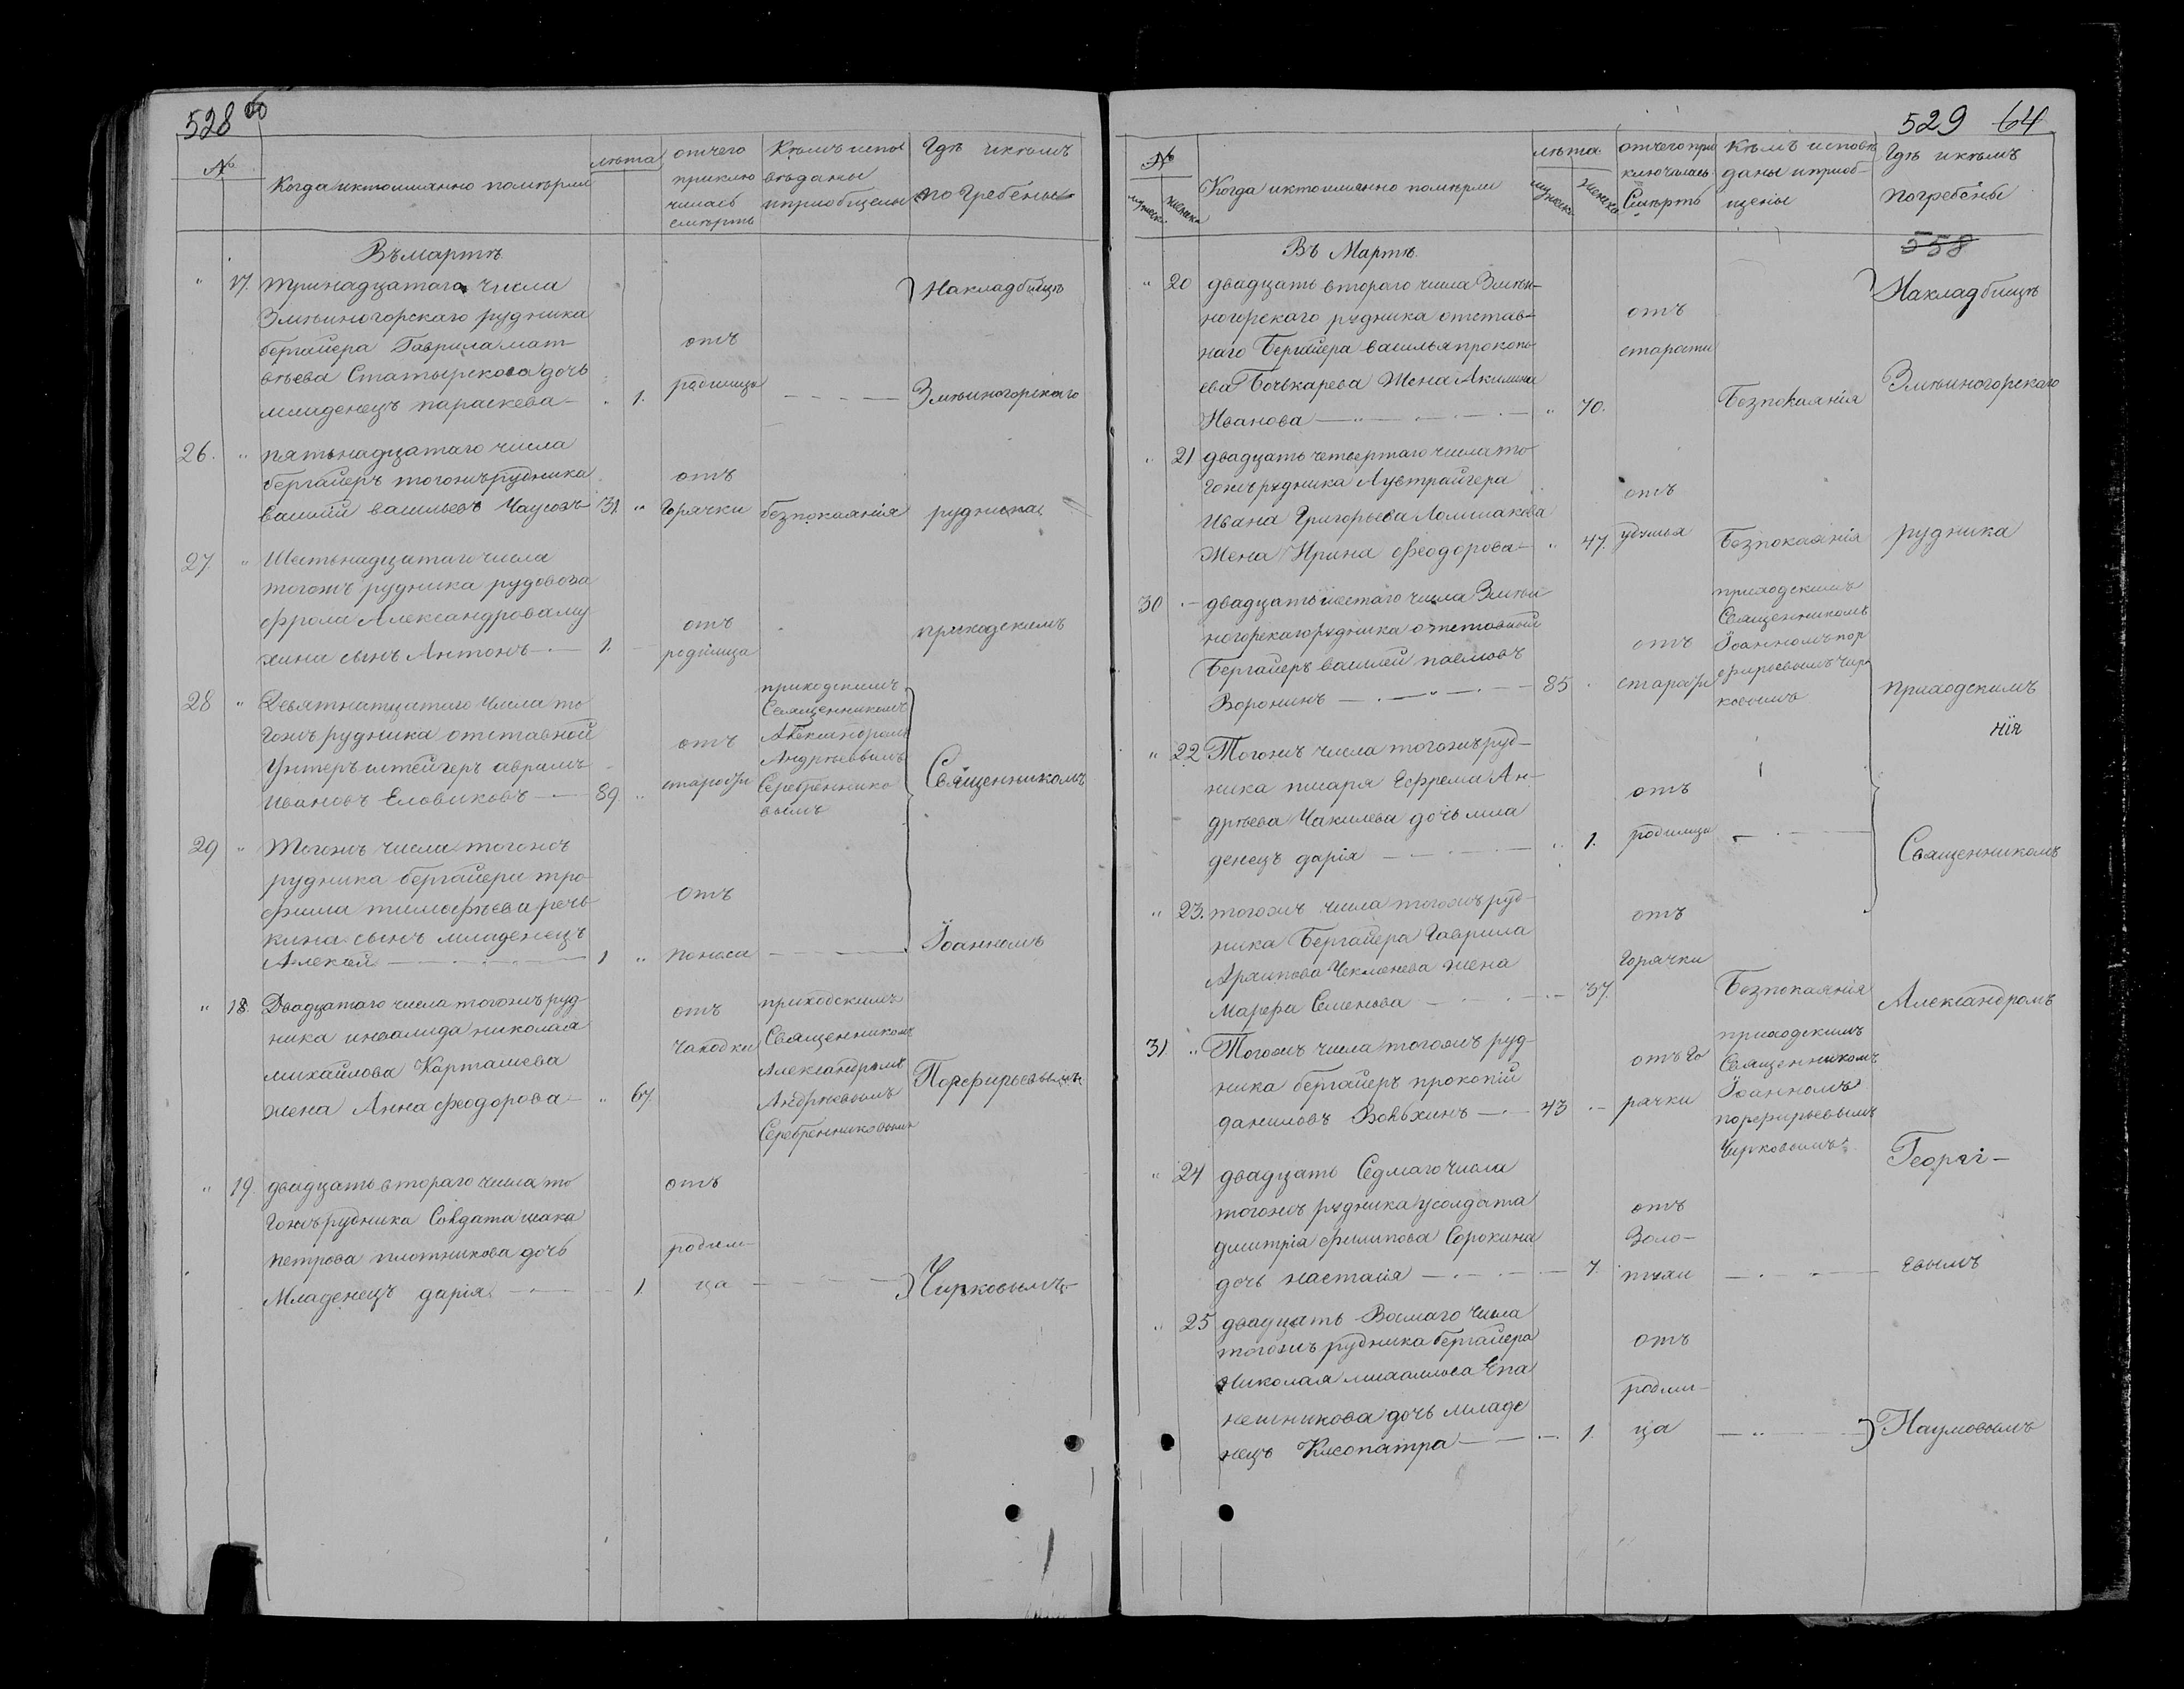 528
№
Когда иктоимянно помѣрли
лѣта
отчего
приклю
чилась
смѣрть
Кѣмъ испо
вѣданы
иприобщены
Гдѣ икѣмъ
погребены
Въ мартѣ
" 17. тринадцатаго числа
Змѣиногорскаго рудника
бергайера Гаврила мат-
вѣева Статырскова дочь
младенецъ параскева 1.
отъ
родимца
Накладбищѣ
Змѣиногорскаго
26. " пятьнадцатаго числа
бергайеръ тогожъ рудника
василий васильевъ Чаусовъ 31 "
отъ
Горячки
безпокаянiя
рудника
27. " Шестьнадцатаго числа
тогожъ рудника рудовоза
фрола Александрова му
хина сынъ Антонъ 1.
отъ
родимца
приходскимъ
28 " Девятнатцатаго числа то
гожъ рудника отставной
Унтеръ штейгеръ аврамъ
Ивановъ Еловиковъ 89 "
отъ
старости
приходскимъ
Священникомъ
Александромъ
Андрѣевымъ
Серебреннико
вымъ
Священникомъ
29 " Тогожъ числа тогожъ
рудника бергайера тро
фима тимофѣева речь
кина сынъ младенецъ
Алекѣй 1 "
отъ
поноса
Iоанномъ
" 18. Двадцатаго числа тогожъ руд-
ника инвалида николая
михайлова Карташева
жена Анна феодорова " 67.
отъ
чахотки
приходскимъ
Священникомъ
Александромъ
Андрѣевымъ
Серебренниковымъ
Порфирьевымъ
" 19. двадцать втораго числа то
гожъ рудника Солдата исака
петрова плотникова дочь
Младенецъ дарiя 1.
отъ
родим-
ца
Чирковымъ
529 64
№
мужеск.
женска.
Когда иктоимянно помѣрли
лѣта
мужеск.
женска.
отчего при
ключилась
Смѣрть
Кѣмъ исповѣ
даны иприоб-
щены
Гдѣ икѣмъ
погребены
558
Въ Мартѣ.
" 20 двадцать втораго числа Змѣи-
ногорскаго рудника отстав-
наго Бергайера василья прокопь
ева Бочкарева Жена Акилина
Иванова " 70.
отъ
старости
Безпокаянiя
Накладбищѣ
Змѣиногорскаго
" 21 двадцать четвертаго числа то
гожъ рудника Аувтрайгера
Ивана Григорьева Ломшакова
Жена Ирина феодорова " 47.
отъ
удушья
Безпокаянiя
рудника
30 двадцать шестаго числа Змѣи
ногорскаго рудника отставный
Бергайеръ василей павловъ
Воронинъ 85
отъ
старости
приходскимъ
Священникомъ
Iоанномъ пор
фирьевымъ Чир
ковымъ
приходскимъ
нiя
" 22 Тогожъ числа тогожъ руд-
ника писаря Ефрема Ан-
дрѣева Чакилева дочь мла
денецъ дарiя 1.
отъ
родимца
Священникомъ
" 23. тогожъ числа тогожъ руд-
ника Бергайера Гаврила
Архипова Чекменева жена
Марфа Семенова 37.
отъ
Горячки
Безпокаянiя
Александромъ
31. " Тогожъ числа тогожъ руд-
ника бергайеръ прокопiй
даниловъ Вовохинъ 43
отъ го
рячки
приходскимъ
Священникомъ
Iоанномъ
порфирьевымъ
Чирковымъ
Георгi-
" 24 двадцать Седмаго числа
тогожъ рудника усолдата
дмитрiя филипова Сорокина
дочь настасiя 7.
отъ
Золо-
тухи
евымъ
" 25 двадцать Восмаго числа
тогожъ рудника бергайера
Николая михаилова Епа
нешникова дочь младе
нецъ Клеопатра 1.
отъ
родим-
ца
Наумовымъ